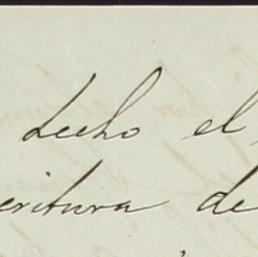 hecho el
critura de